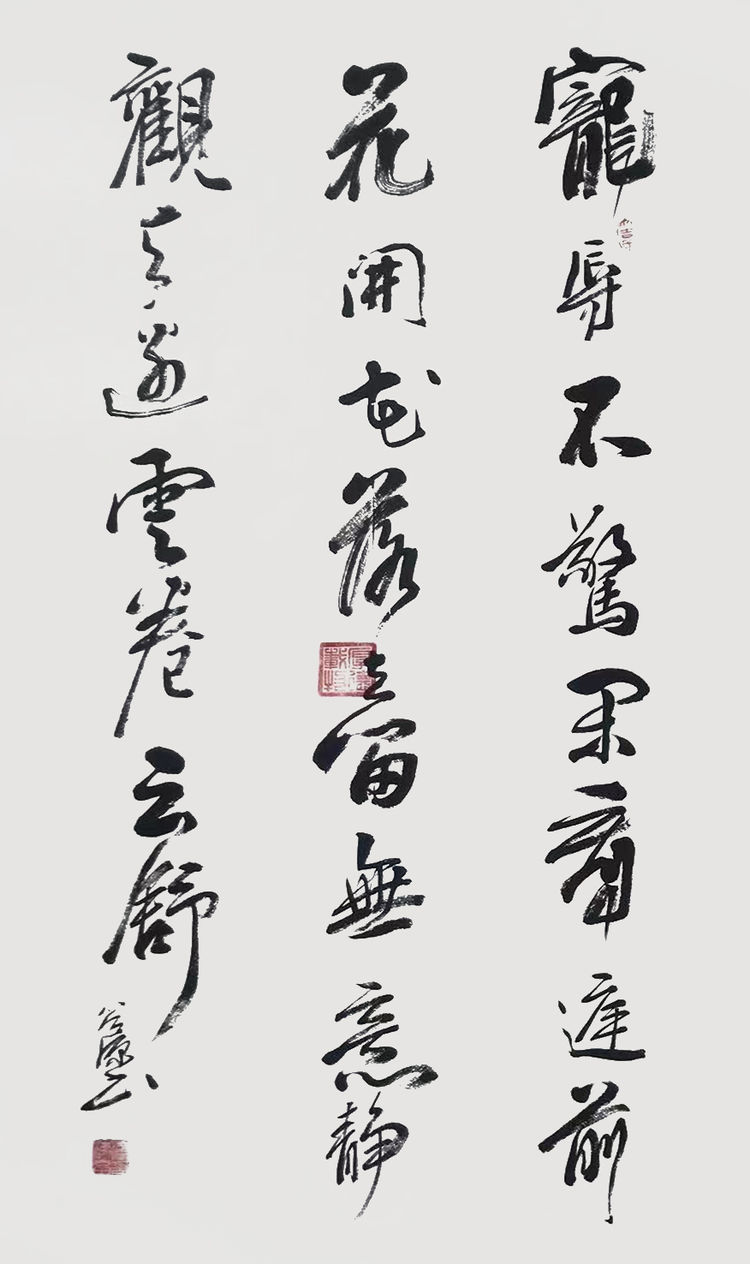 寵辱不驚閑看庭前
花開花落去留無意静
觀天邊雲卷云舒